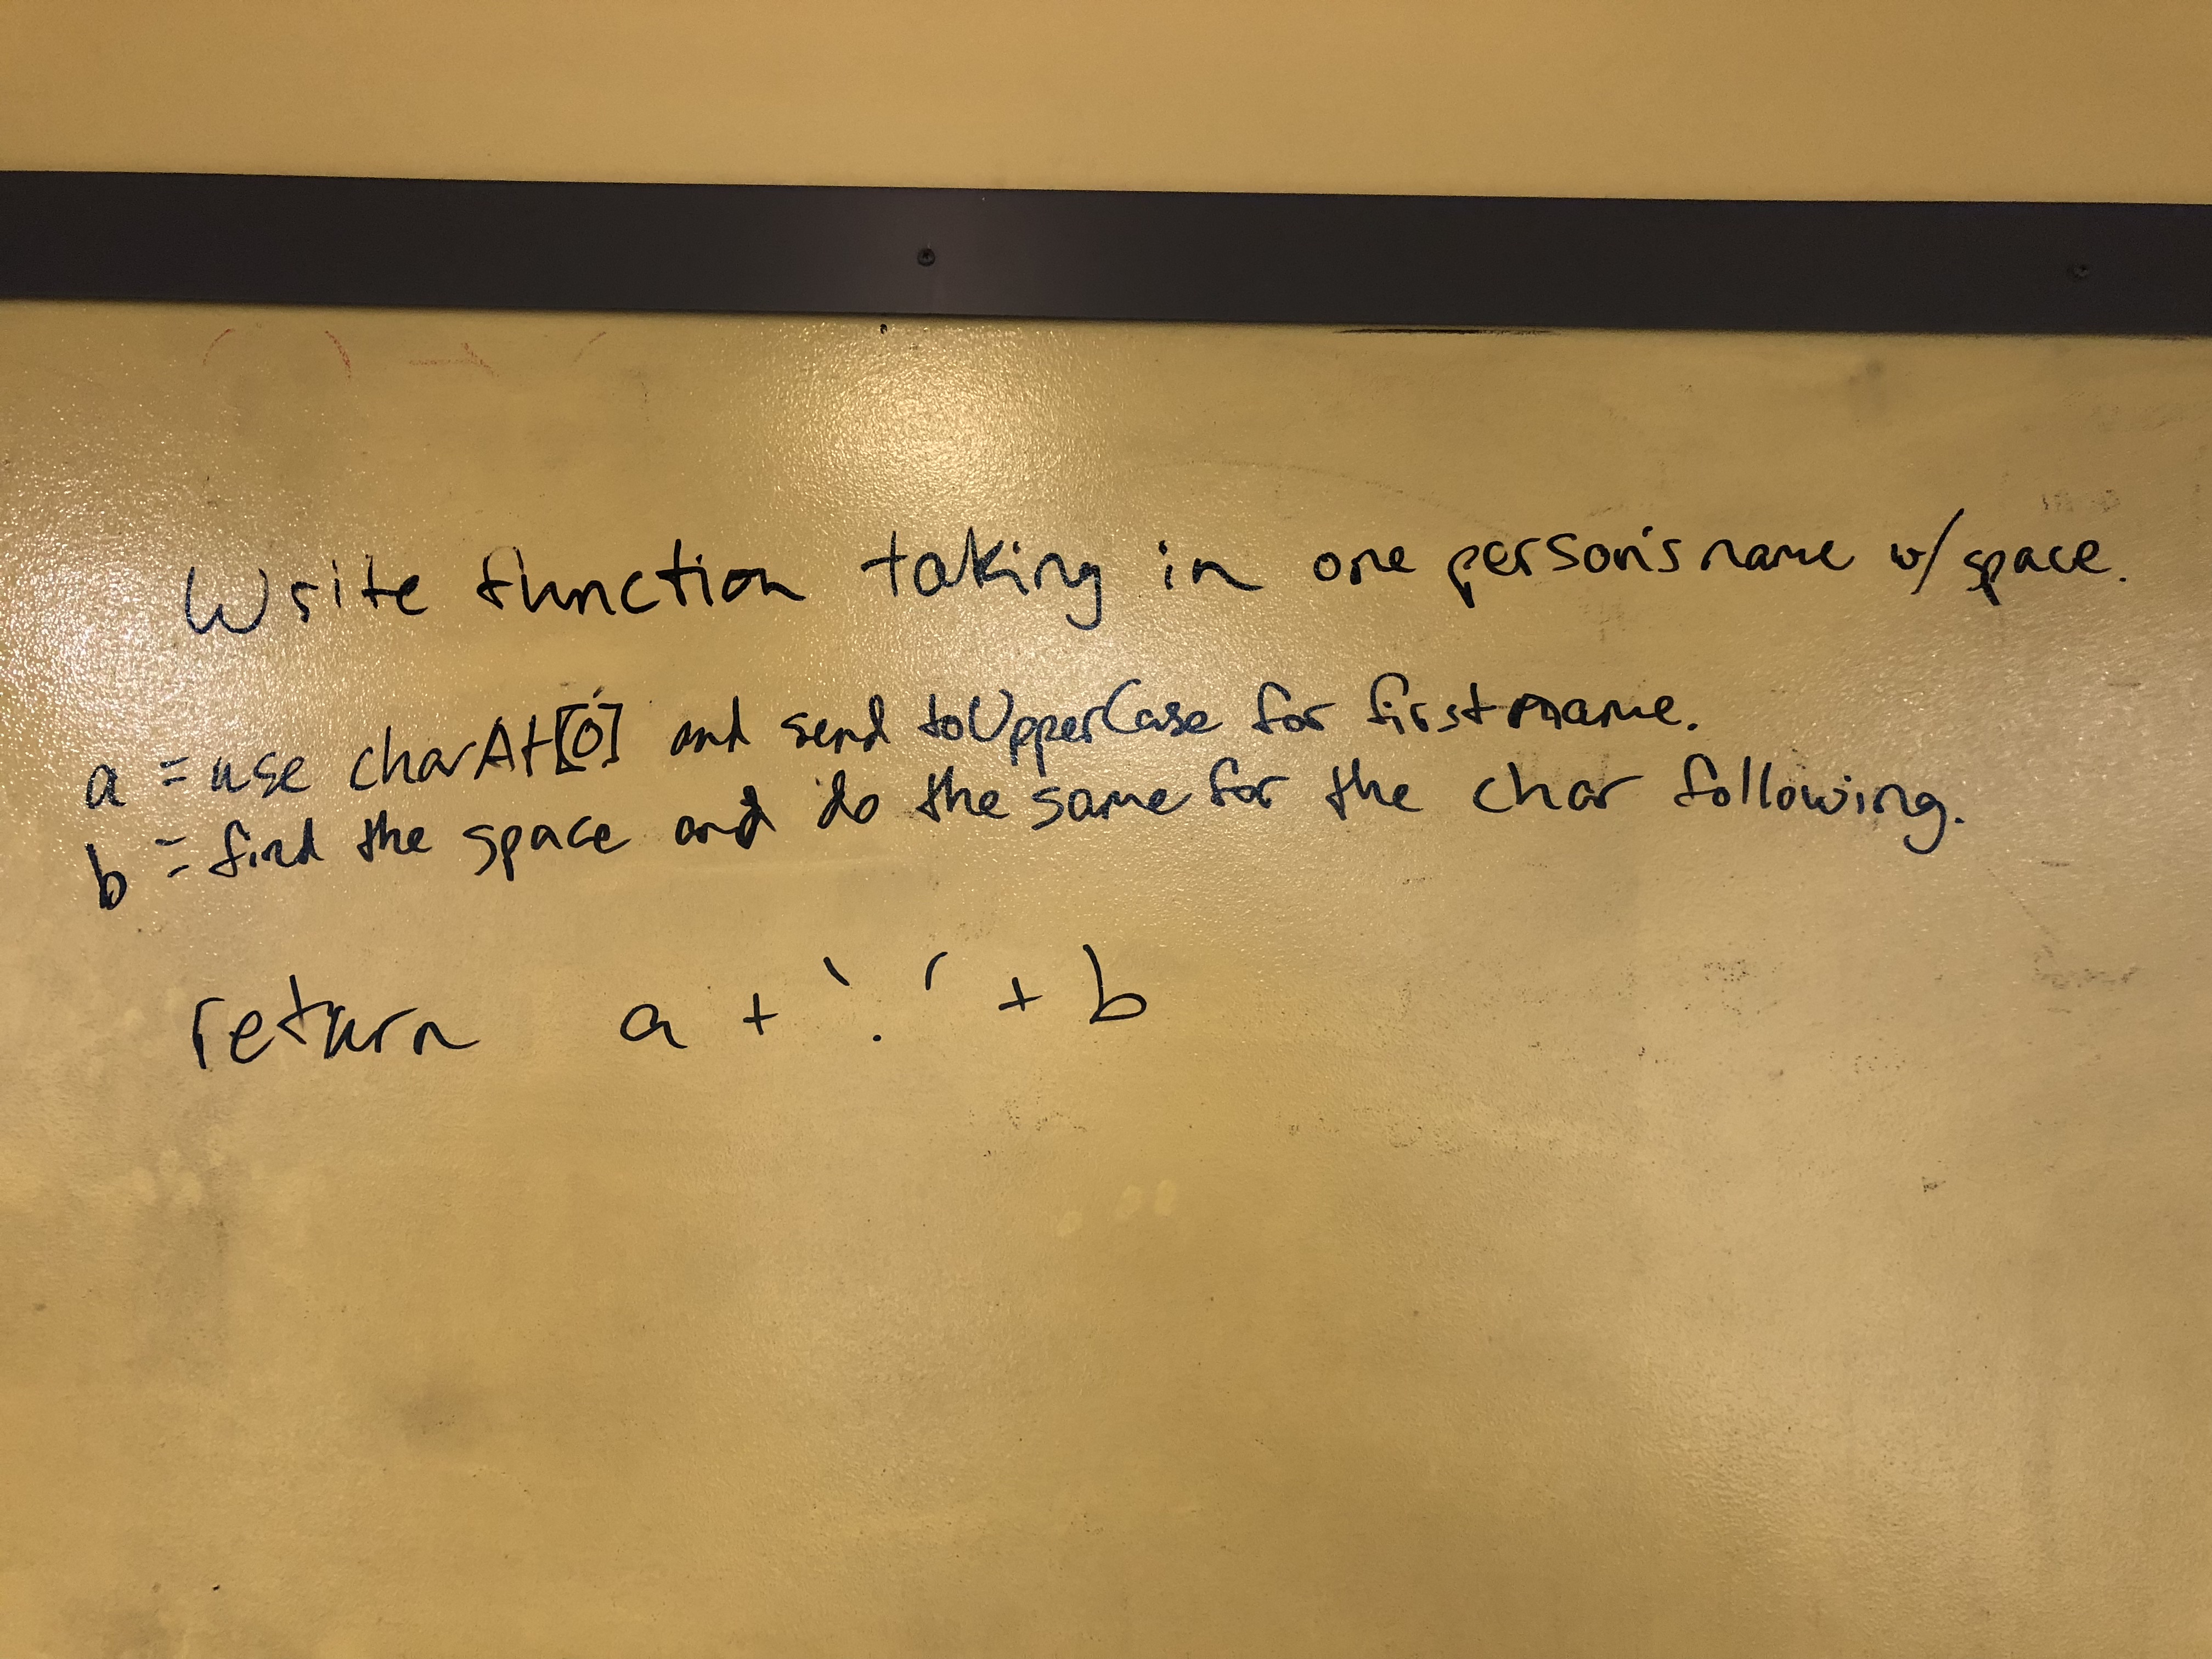 Write function taking in one person's name w/ space.
a = use charAt[0] and send toUpperCase for first name.
b = find the space and do the same for the char following.
return a + '.' + b